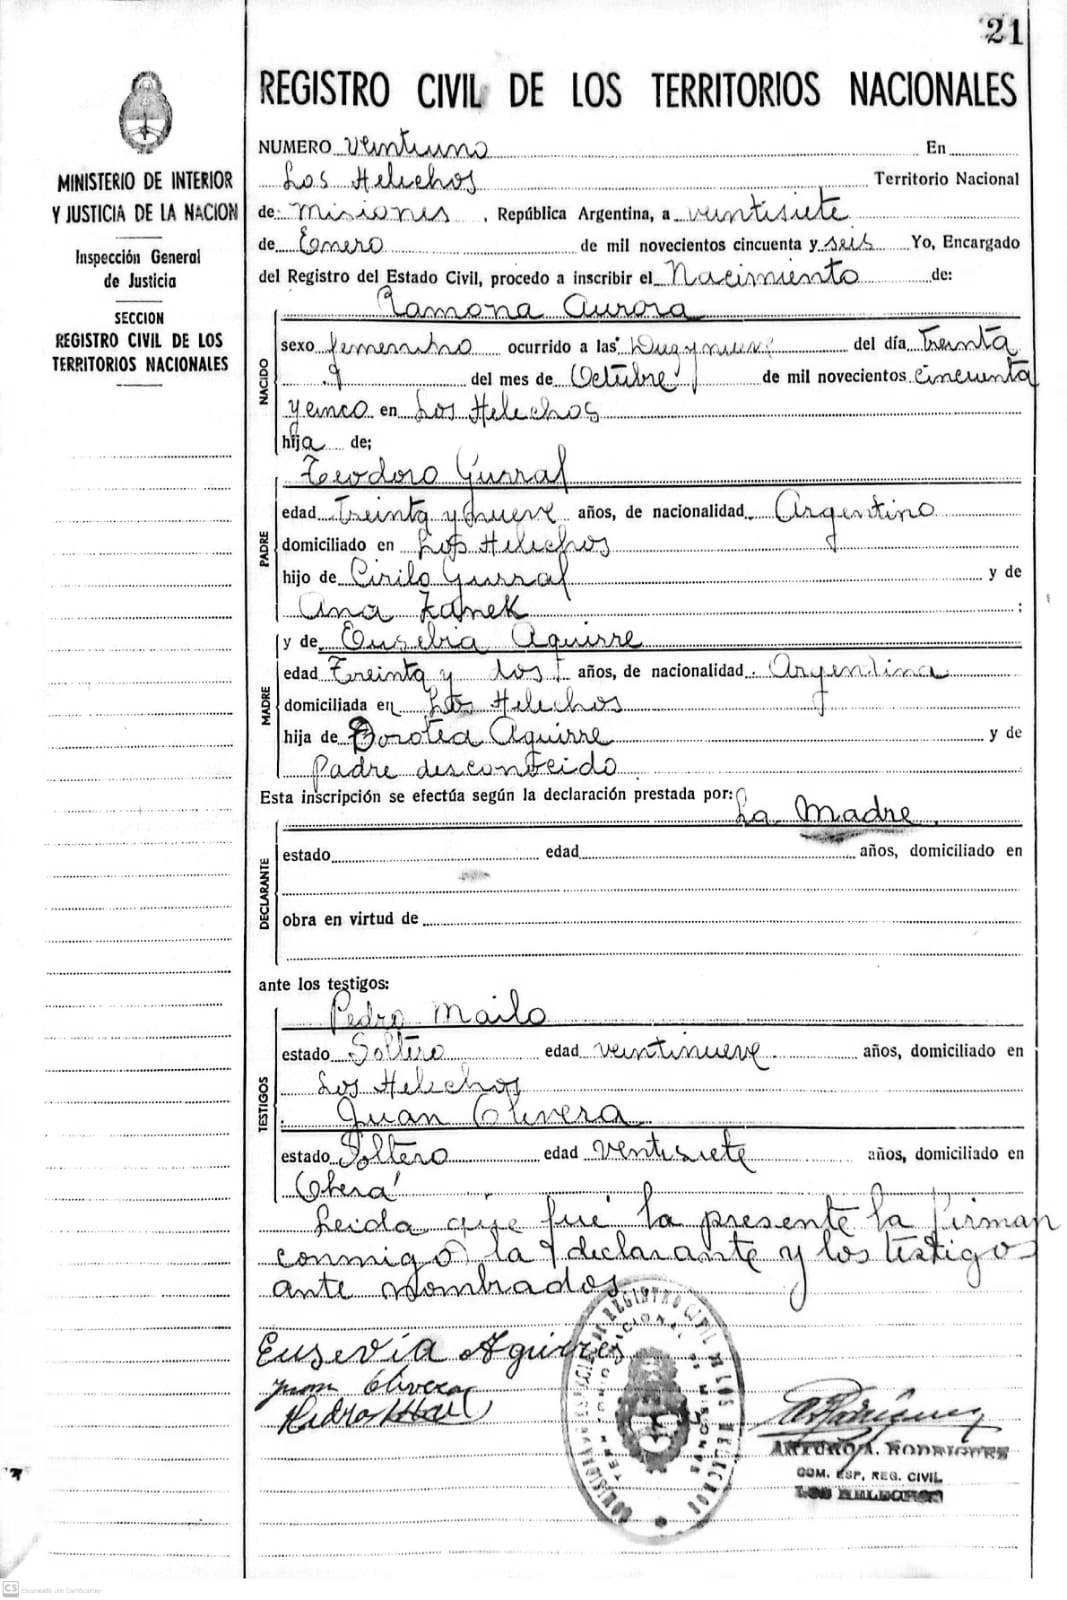 21
REGISTRO CIVIL DE LOS TERRITORIOS NACIONALES
MINISTERIO DE INTERIOR
Y JUSTICIA DE LA NACION
Inspección General
de Justicia
SECCION
REGISTRO CIVIL DE LOS
TERRITORIOS NACIONALES
NUMERO veintiuno En
Los Helechos Territorio Nacional
de: Misiones, República Argentina, a ventisiete
de Enero de mil novecientos cincuenta y seis Yo, Encargado
del Registro del Estado Civil, procedo a inscribir el Nacimiento de:
NACIDO
Ramona Aurora
sexo femenino ocurrido a las Diez y nueve del día treinta
del mes de Octubre de mil novecientos cincuenta
y cinco en Los Helechos
hija de;
PADRE
Teodoro Gurral
edad Treinta y nueve años, de nacionalidad Argentino
domiciliado en Los Helechos
hijo de Cirilo Gurral y de
Ana Zanek ;
MADRE
y de Eusebia Aguirre
edad Treinta y dos años, de nacionalidad Argentina
domiciliada en Los Helechos
hija de Dorotea Aguirre y de
Padre desconocido
Esta inscripción se efectúa según la declaración prestada por: La Madre
DECLARANTE
estado edad años, domiciliado en
obra en virtud de
ante los testigos:
TESTIGOS
Pedro Mailo
estado Soltero edad veintinueve años, domiciliado en
Los Helechos
Juan Olivera
estado Soltero edad ventisiete años, domiciliado en
Oberá
Leida que fué la presente la firman
conmigo la declarante y los testigos
ante nombrados
Eusevia Aguirres
Juan Olivera
Pedro
ARTURO A. RODRIGUEZ
COM. ESP. REG. CIVIL
LOS HELECHOS
REGISTRO CIVIL DE LOS HELECHOS
CS Escaneado con CamScanner